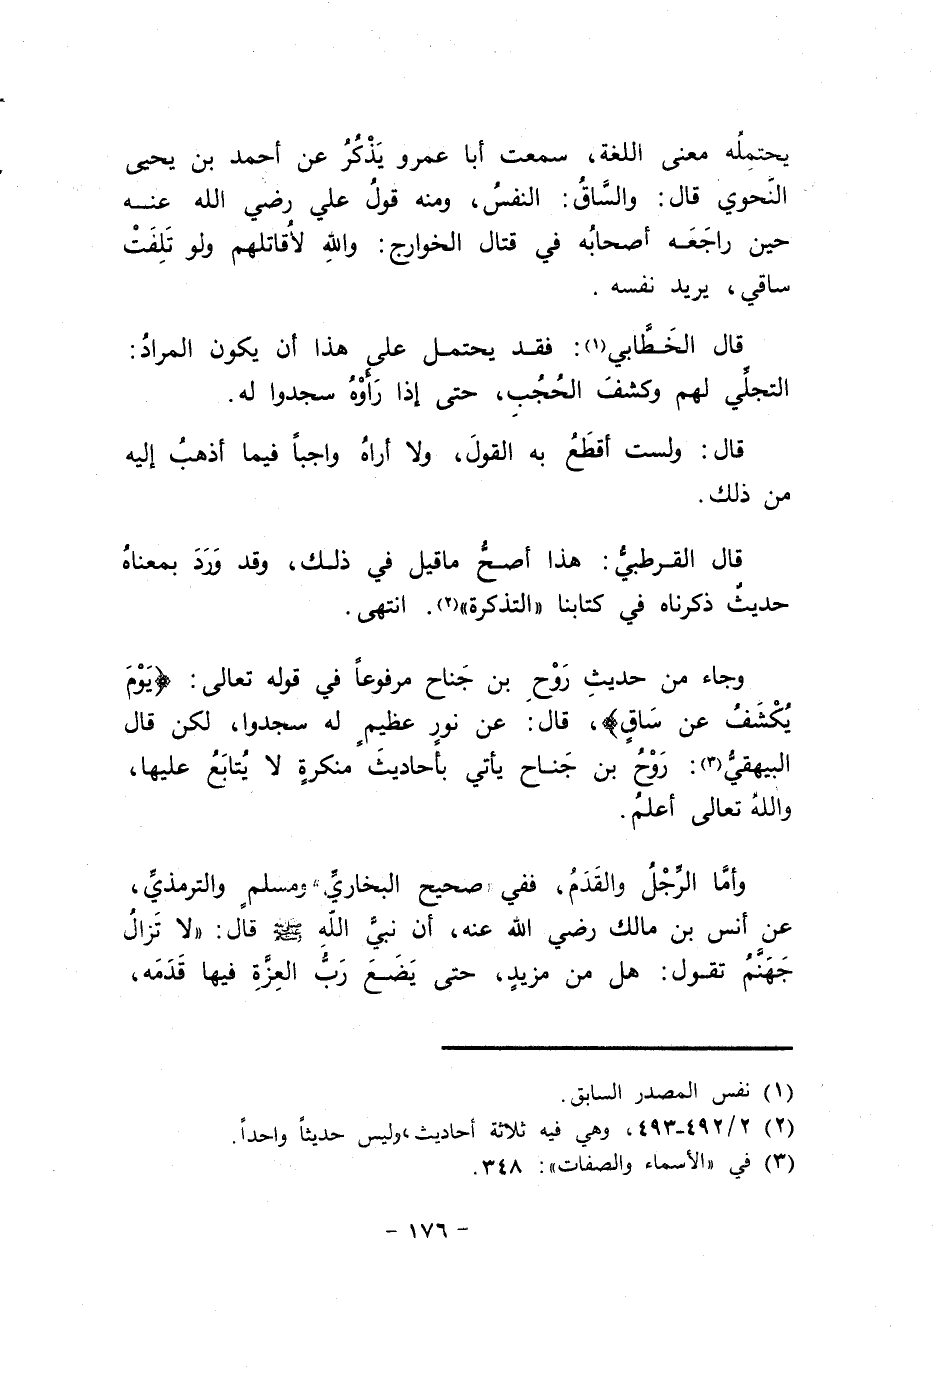 يحتمِلُه معنى اللغة، سمعت أبا عمرو يَذْكُرُ عن أحمد بن يحيى
النَّحوي قال: والسَّاقُ: النفسُ، ومنه قولُ علي رضي الله عنه
حين راجَعَه أصحابُه في قتال الخوارج: واللهِ لأُقاتلهم ولو تَلِفَتْ
ساقي، يريد نفسه .
قال الخَطَّابي(١): فقد يحتمل على هذا أن يكون المرادُ:
التجلِّي لهم وكشفَ الحُجُبِ، حتى إذا رَأَوْهُ سجدوا له.
قال: ولست أقطَعُ به القولَ، ولا أراهُ واجباً فيما أذهبُ إليه
من ذلك.
قال القرطبيُّ: هذا أصحُّ ماقيل في ذلك، وقد وَرَدَ بمعناهُ
حديثٌ ذكرناه في كتابنا «التذكرة»(٢). انتهى.
وجاء من حديثِ رَوْحِ بن جَناح مرفوعاً في قوله تعالى: ﴿يَوْمَ
يُكْشَفُ عن سَاقٍ﴾، قال: عن نورٍ عظيمٍ له سجدوا، لكن قال
البيهقيُّ(٣): رَوْحُ بن جَناح يأتي بأحاديثَ منكرةٍ لا يُتابَعُ عليها،
واللهُ تعالى أعلمُ.
وأمَّا الرِّجْلُ والقَدَمُ، ففي صحيح البخاريِّ ومسلمٍ والترمذيِّ،
عن أنس بن مالك رضي الله عنه، أن نبيَّ اللّهِ ﷺ قال: «لا تَزالُ
جَهَنَّمُ تقول: هل من مزيدٍ، حتى يَضَعَ رَبُّ العِزَّةِ فيها قَدَمَه،
(١) نفس المصدر السابق.
(٢) ٤٩٢/٢-٤٩٣، وهي فيه ثلاثة أحاديث،وليس حديثاً واحداً.
(٣) في «الأسماء والصفات»: ٣٤٨.
- ١٧٦ -